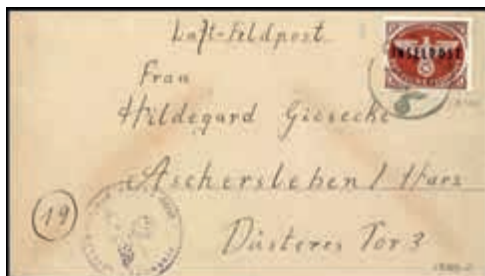 Luft-Feldpost
INSELPOST
Frau
Hildegard Giesecke
Aschersleben / Harz
19
Düsteres Tor 3